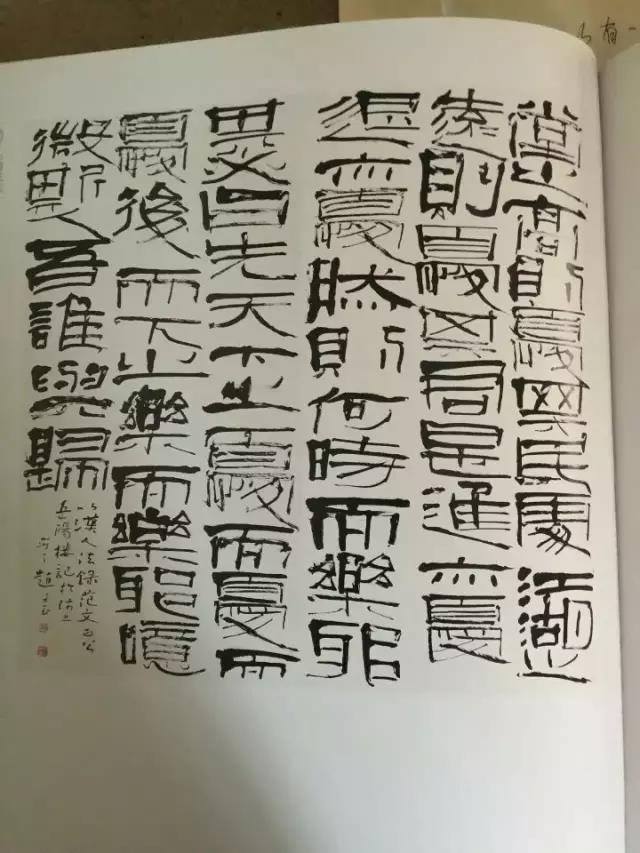 堂之高則憂其民處江湖之
遠則憂其君是進亦憂
退亦憂然則何時而樂耶
必曰先天下之憂而憂而
憂後而下之樂而樂耶噫
微斯人吾誰與歸
以漢人法錄范文正公
岳陽樓記於
趙
有一